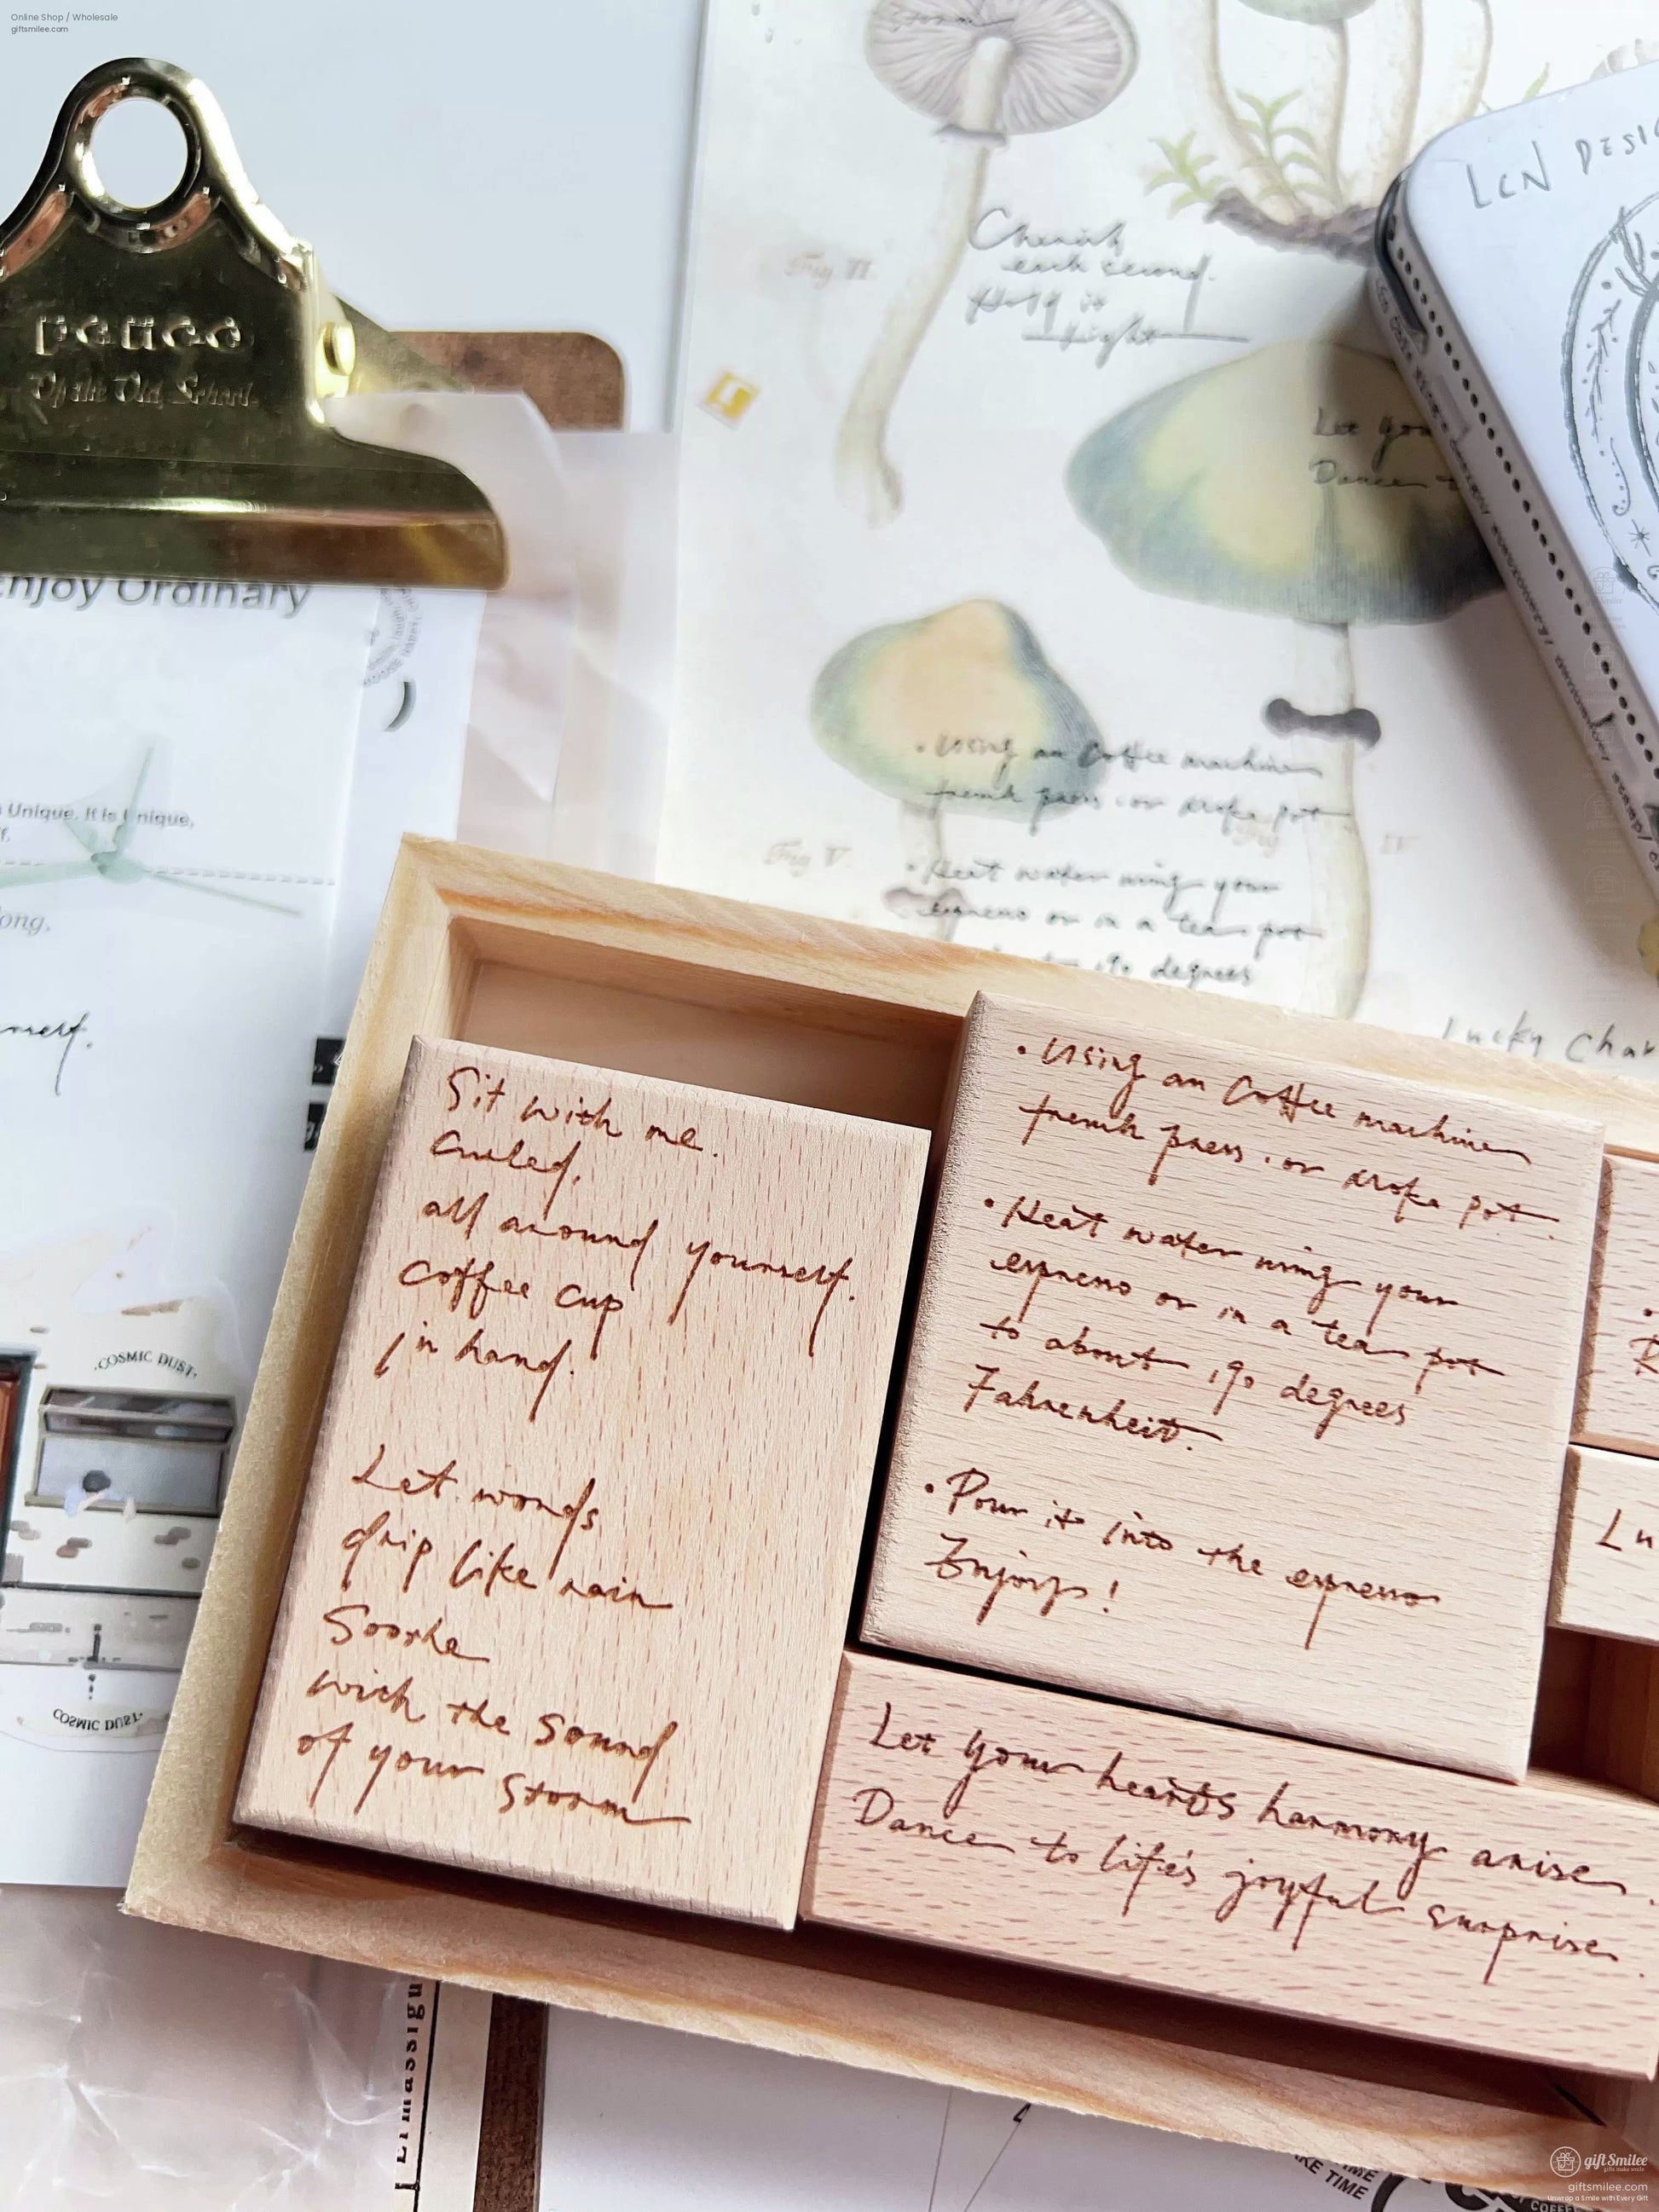 Online Shop / Wholesale
giftsmilee.com
Storm
LCN DESIG
Cherish
each second.
Hold it
tight
Fig VI.
Let you
Dance t
penco
Of the Old School.
Enjoy Ordinary
Unique. It is Unique,
f.
ong.
nself.
• Using an Coffee machine
french press . or
pot
Fig V.
Fig IV
• Heat water using your
espresso or in a tea pot
to 190 degrees
Lucky Char
Sit with me.
Curled,
all around yourself.
coffee cup
in hand.
Let words
drip like rain
Soothe
with the sound
of your storm
• Using an Coffee machine
french press . or
pot.
• Heat water using your
espresso or in a tea pot
to about 190 degrees
Fahrenheit.
• Pour it into the espresso
Enjoys!
R
Lu
Let your hearts harmony arise.
Dance to life's joyful surprise.
·COSMIC DUST·
COSMIC DUST·
TIME
KE TIME
COFFEE
gift Smilee
gifts make smile
giftsmilee.com
Unwrap a Smile with Every Gift